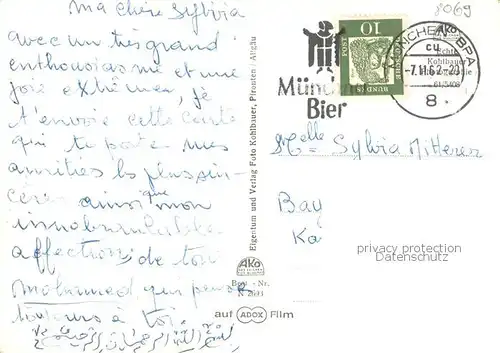 ma chère Sylvia
avec un très grand
enthousiasme et une
joie extrêmes, je
t'envoie cette carte
qui te porte mes
amitiés les plus sin-
cères ainsi que mon
affection de ton
Mohamed qui pense
toujours à toi.
8069
10
POST
MÜNCHEN BPA
cu
-7.11.62-20
8
Münch
Bier
AKo
Echte
Kohlbauer
61/3408
Eigentum und Verlag Foto Kohlbauer, Pfronten / Allgäu
Melle Sylvia Mitterer
Bay
Ka
privacy protection
Datenschutz
AKo
Best.-Nr.
auf ADOX Film